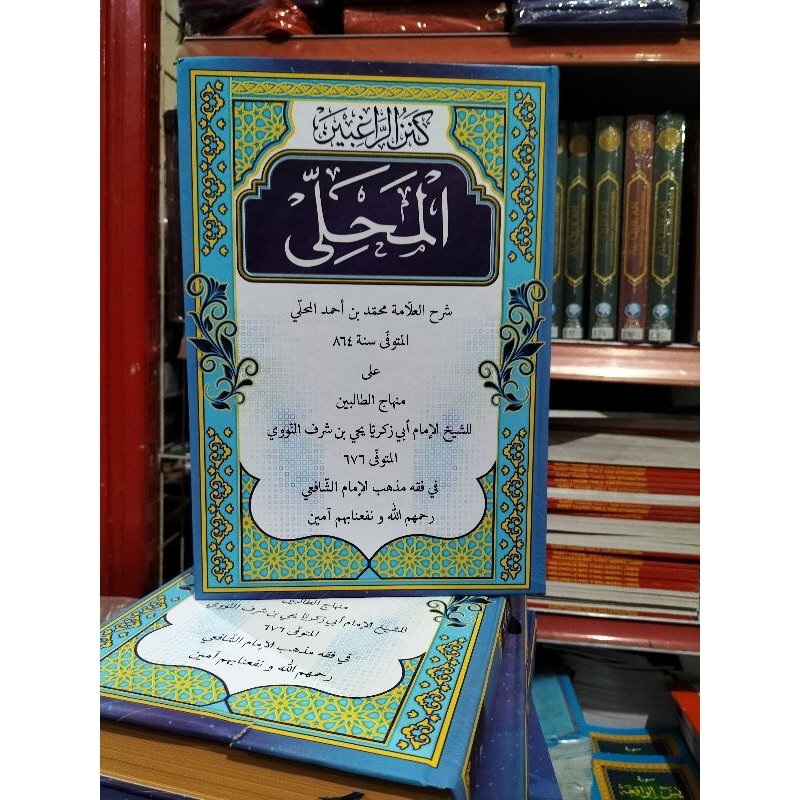 كنز الراغبين
المحلي
شرح العلّامة محمّد بن أحمد المحلّي
المتوفّى سنة ٨٦٤
على
منهاج الطالبين
للشيخ الإمام أبي زكريّا يحي بن شرف النّووي
المتوفّى ٦٧٦
في فقه مذهب الإمام الشّافعي
رحمهم الله و نفعنابهم آمين
منهاج الطالبين
للشيخ الإمام أبي زكريّا يحي بن شرف النّووي
المتوفّى ٦٧٦
في فقه مذهب الإمام الشّافعي
رحمهم الله و نفعنابهم آمين
سورة
سورة
يس الواقعة